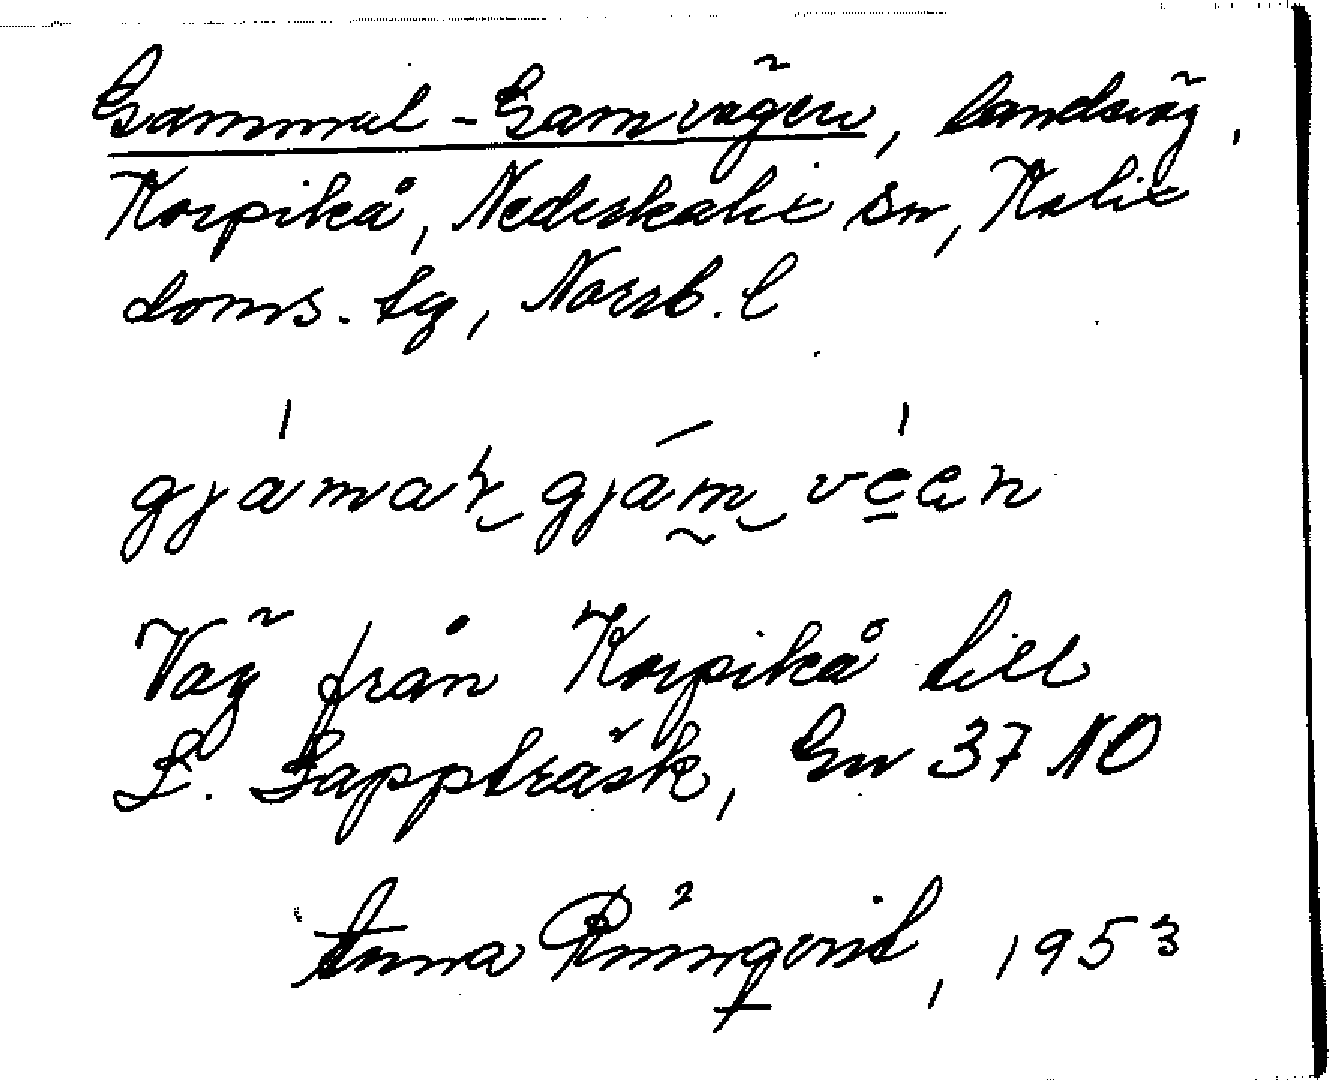 Gammal-Gamvägen, landsväg,
Korpikå, Nederkalix sn, Kalix
doms. tg, Norrb. l
gjámaḷ gjám véen
Väg från Korpikå till
L. Lappträsk, Gn 37 NO
Anna Rönnqvist, 1953